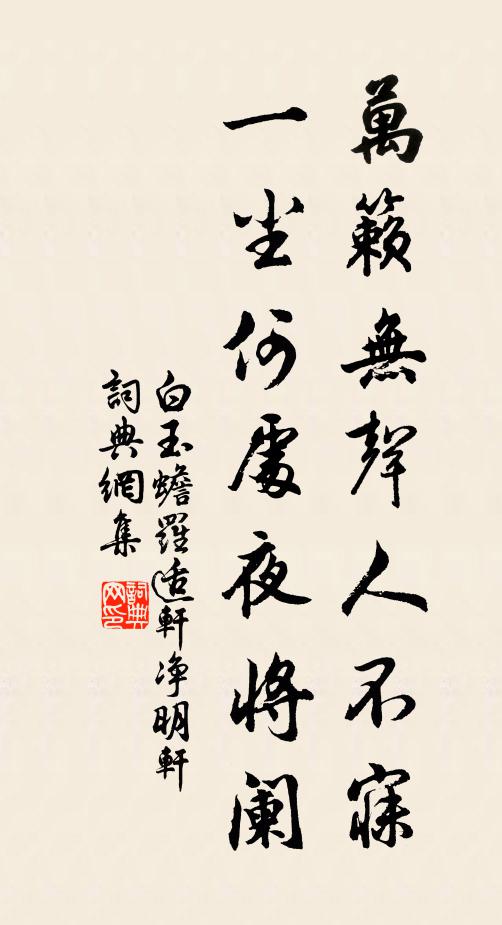 萬籟無聲人不寐
一尘何處夜將阑
白玉蟾羅适軒净明軒
詞典網集
詞典網印